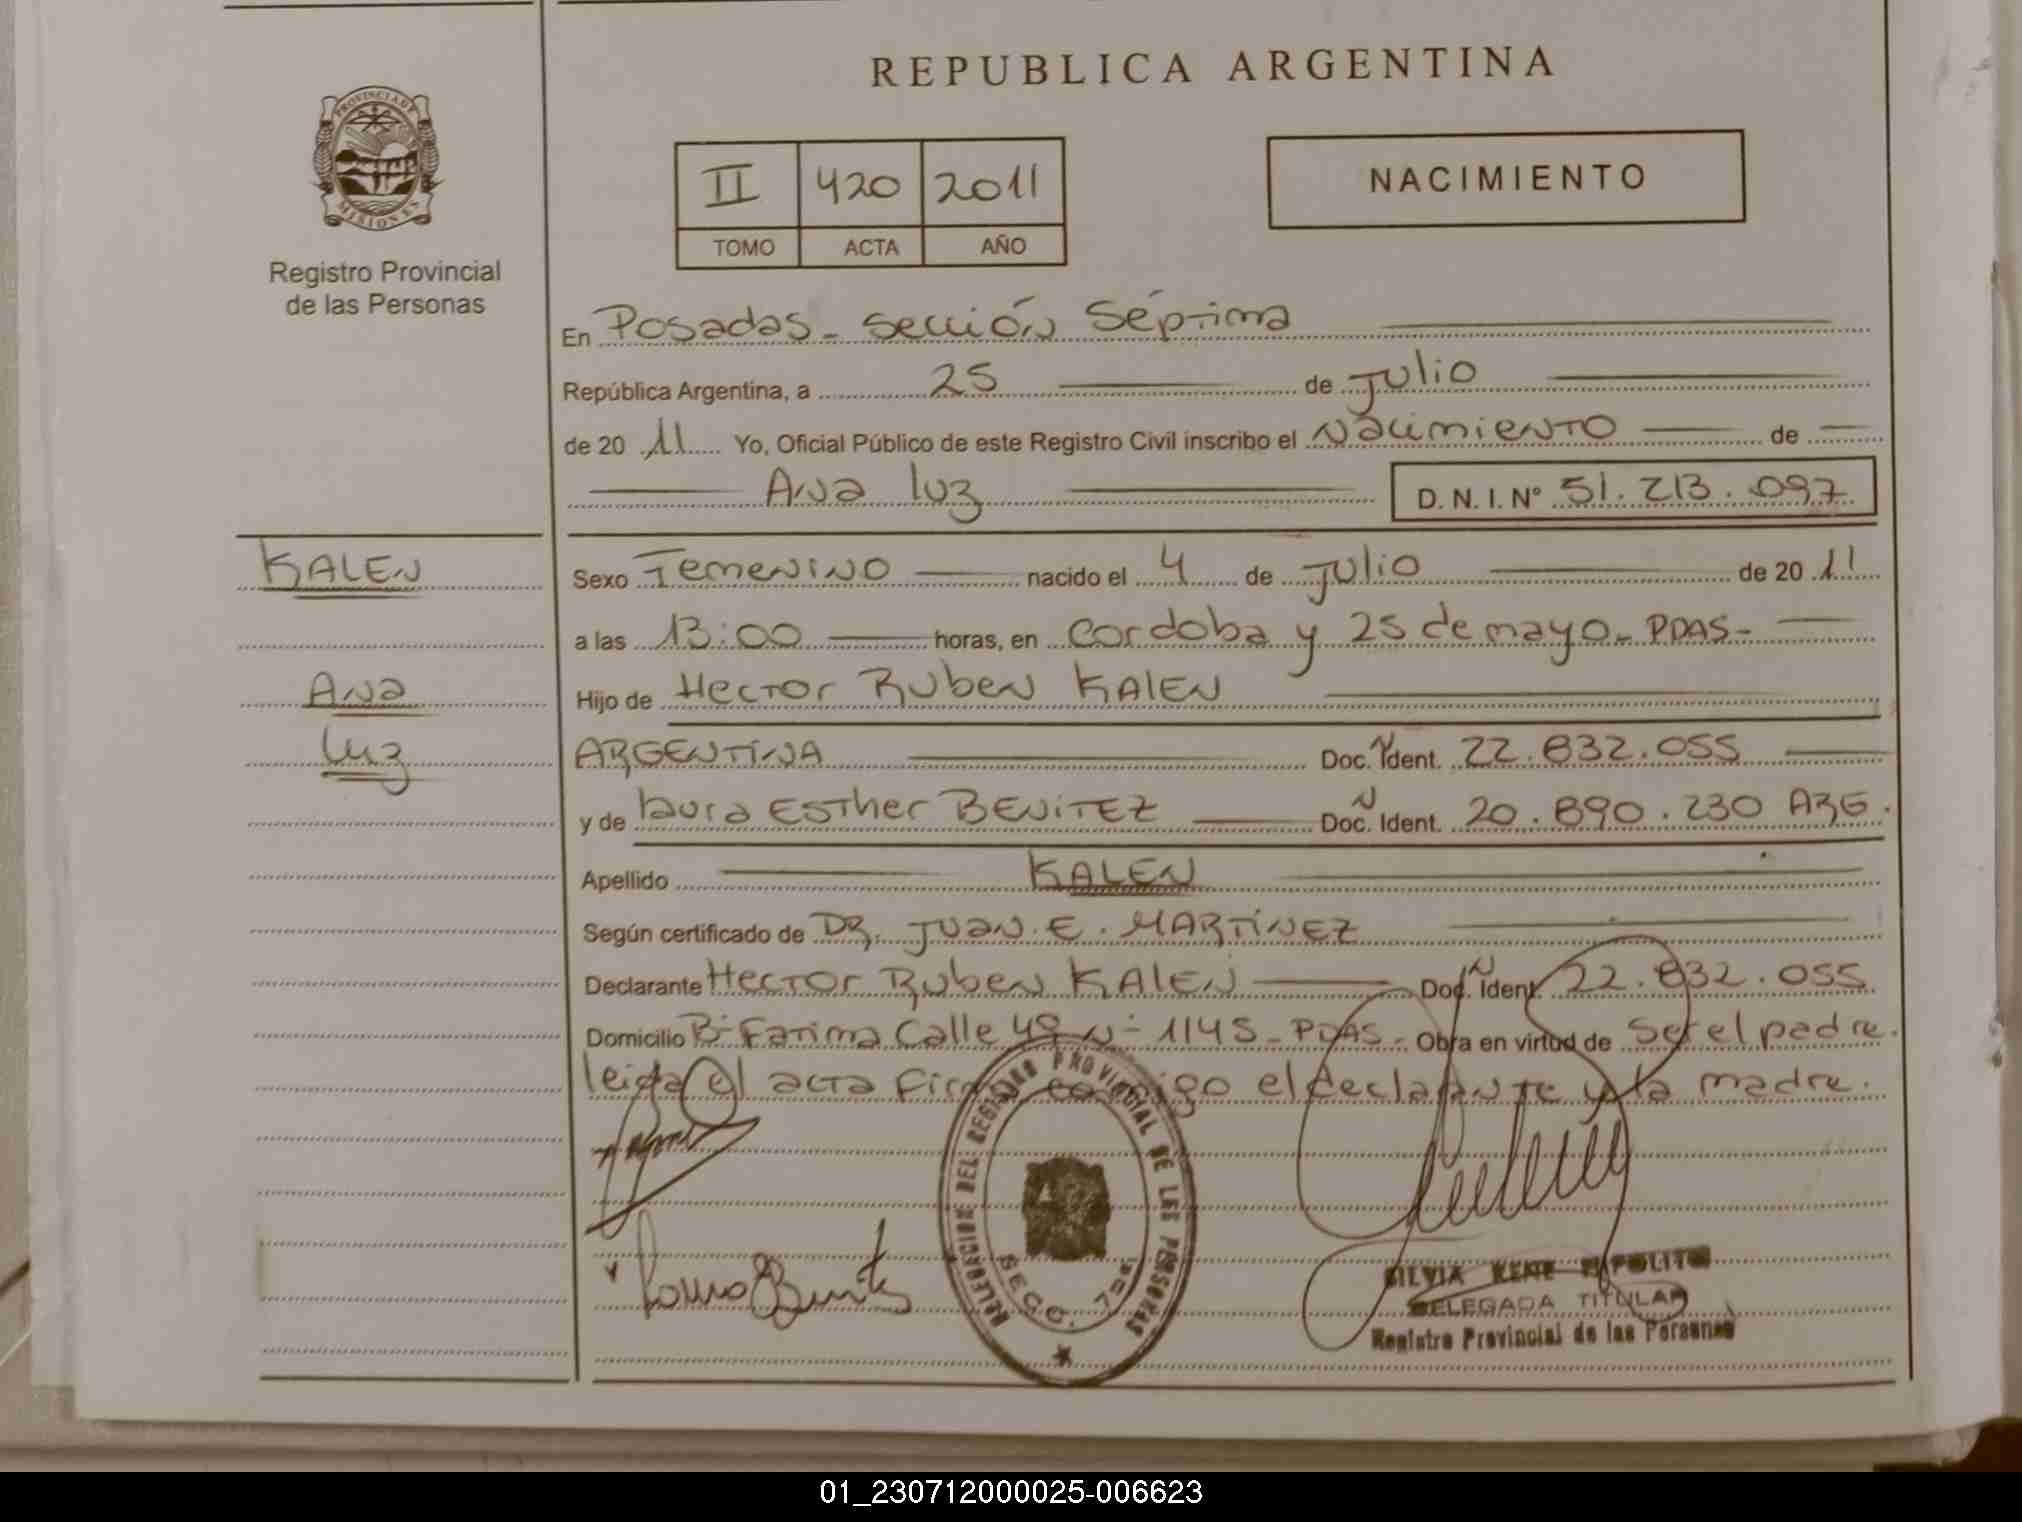 REPUBLICA ARGENTINA
PROVINCIA DE MISIONES
Registro Provincial
de las Personas
II 420 2011
TOMO ACTA AÑO
NACIMIENTO
En Posadas - Sección Séptima
República Argentina, a 25 de Julio
de 20 11 Yo, Oficial Público de este Registro Civil inscribo el Nacimiento de
Ana Luz D. N. I. Nº 51.213.097
KALEN
Ana
Luz
Sexo Femenino nacido el 4 de Julio de 20 11
a las 13:00 horas, en Cordoba y 25 de mayo - PDAS -
Hijo de Hector Ruben KALEN
ARGENTINA Doc. Ident. 22.832.055
y de Laura Esther BENITEZ Doc. Ident. 20.890.230 ARG.
Apellido KALEN
Según certificado de DR. JUAN E. MARTINEZ
Declarante Hector Ruben KALEN Doc. Ident. 22.832.055
Domicilio Bº Fatima Calle 49 Nº 1145 - PDAS - Obra en virtud de ser el padre.
leida el acta firma conmigo el declarante y la madre.
DELEGACION DEL REGISTRO PROVINCIAL DE LAS PERSONAS
SECC. 7ma
SILVIA RENE HIPOLITO
DELEGADA TITULAR
Registro Provincial de las Personas
01_230712000025-006623